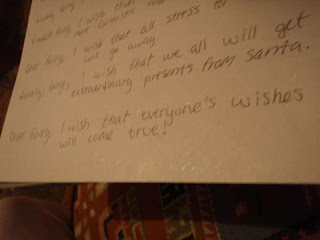 fairy, I wish
not fantastic
Dear fairy, I wish that all stress
will go away
Lovely, fairy, I wish that we all will get
extraordinary presents from santa.
Dear fairy, I wish that everyone's wishes
will come true!